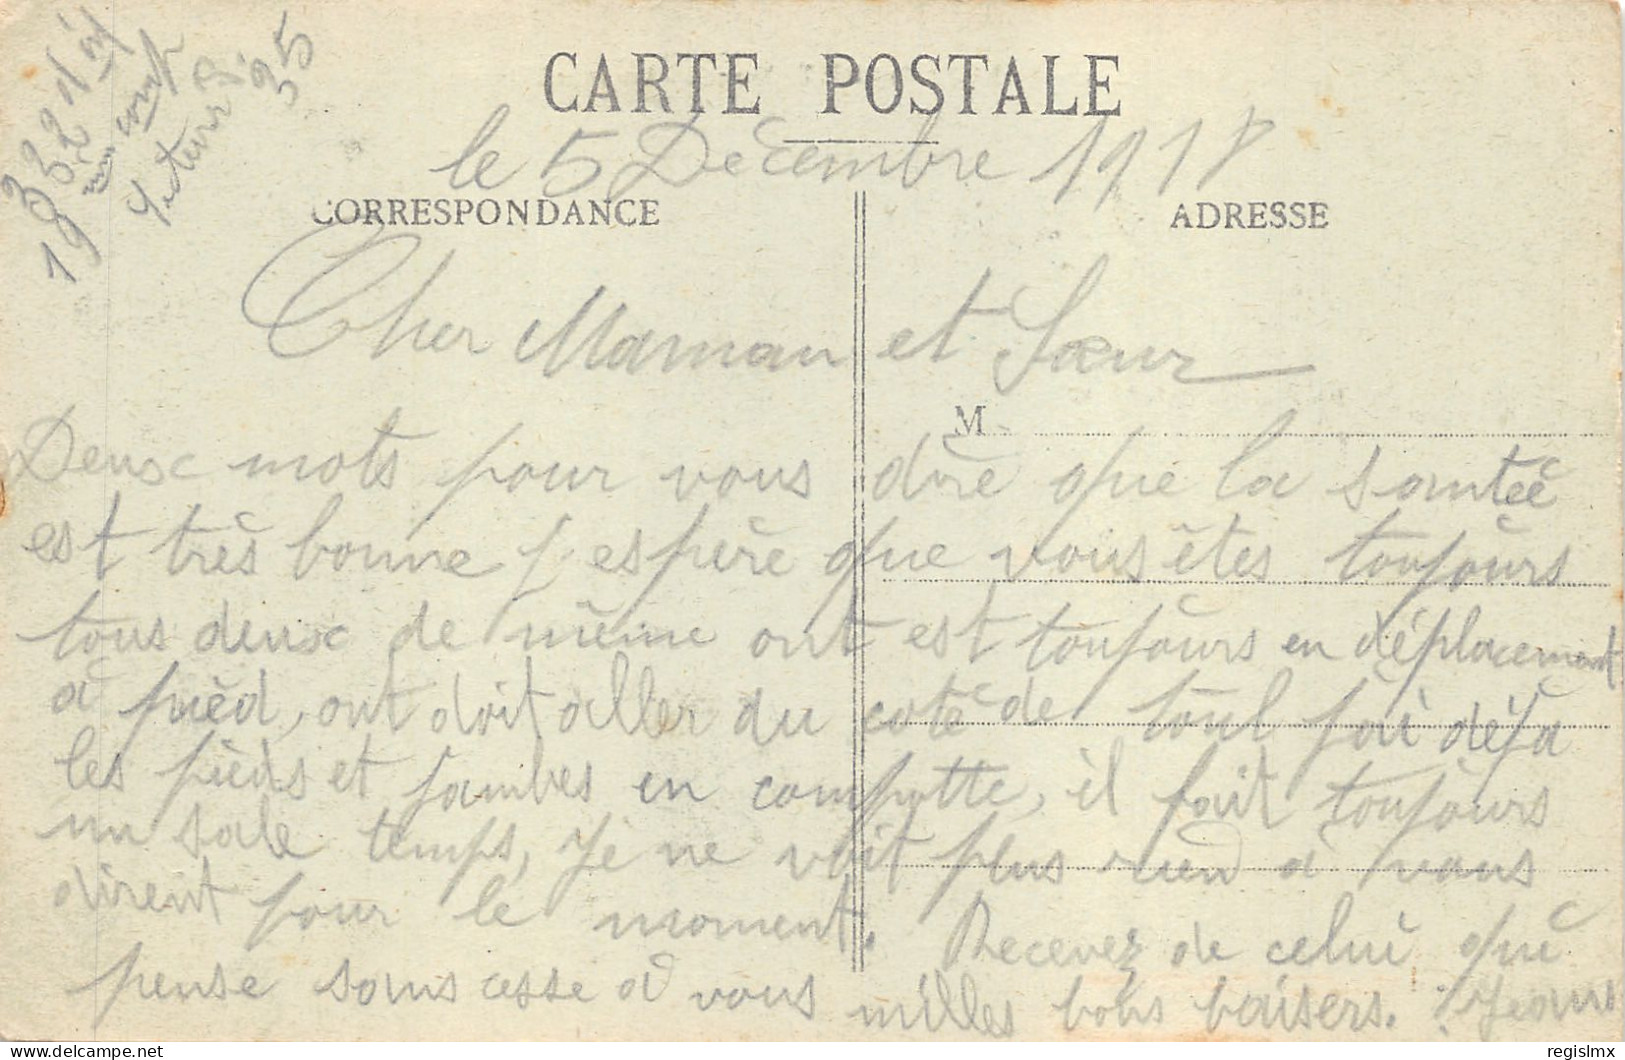 332 d'inf
19 comp
Secteur P. 95
CARTE POSTALE
le 5 Décembre 1917
CORRESPONDANCE
ADRESSE
Cher Maman et Sœur
M
Deux mots pour vous dire que la santée
est très bonne j'espère que vous êtes toujours
tous deux de même ont est toujours en déplacement
à pièd, ont doit aller du coté de Toul j'ai déjà
les pièds et jambes en compotte, il fait toujours
un sale temps, je ne voit plus rien à vous
dirent pour le moment. Recevez de celui qui
pense sans cesse à vous milles bons baisers.
regislmx